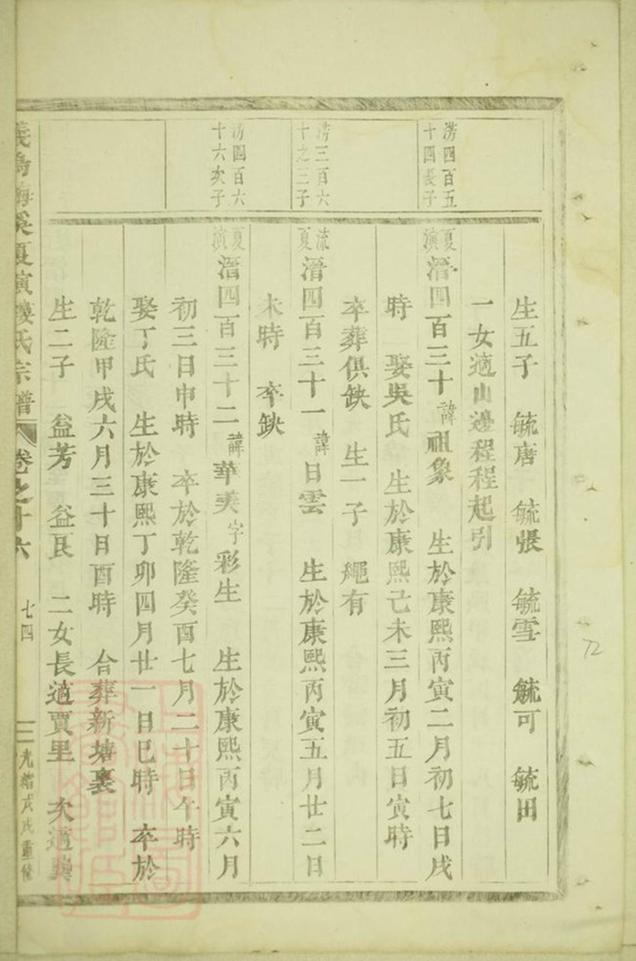 生五子 毓唐 毓張 毓雪 毓可 毓田
一女適山邊程程起引
淓四百五十四長子
夏演
溍四百三十諱祖象 生於康熙丙寅二月初七日戌
時 娶吳氏 生於康熙己未三月初五日寅時
卒葬俱缺 生一子 繩有
淓三百六十之三子
流夏
溍四百三十一諱日雲 生於康熙丙寅五月廿二日
未時 卒缺
淓四百六十六次子
夏演
溍四百三十二諱華美字彩生 生於康熙丙寅六月
初三日申時 卒於乾隆癸酉七月二十日午時
娶丁氏 生於康熙丁卯四月廿一日巳時 卒於
乾隆甲戌六月三十日酉時 合葬新塘裏
生二子 益芳 益艮 二女長適賈里 次適
義烏海溪夏演樓氏宗譜 卷之十六 七四 光緒戊戌重修
72